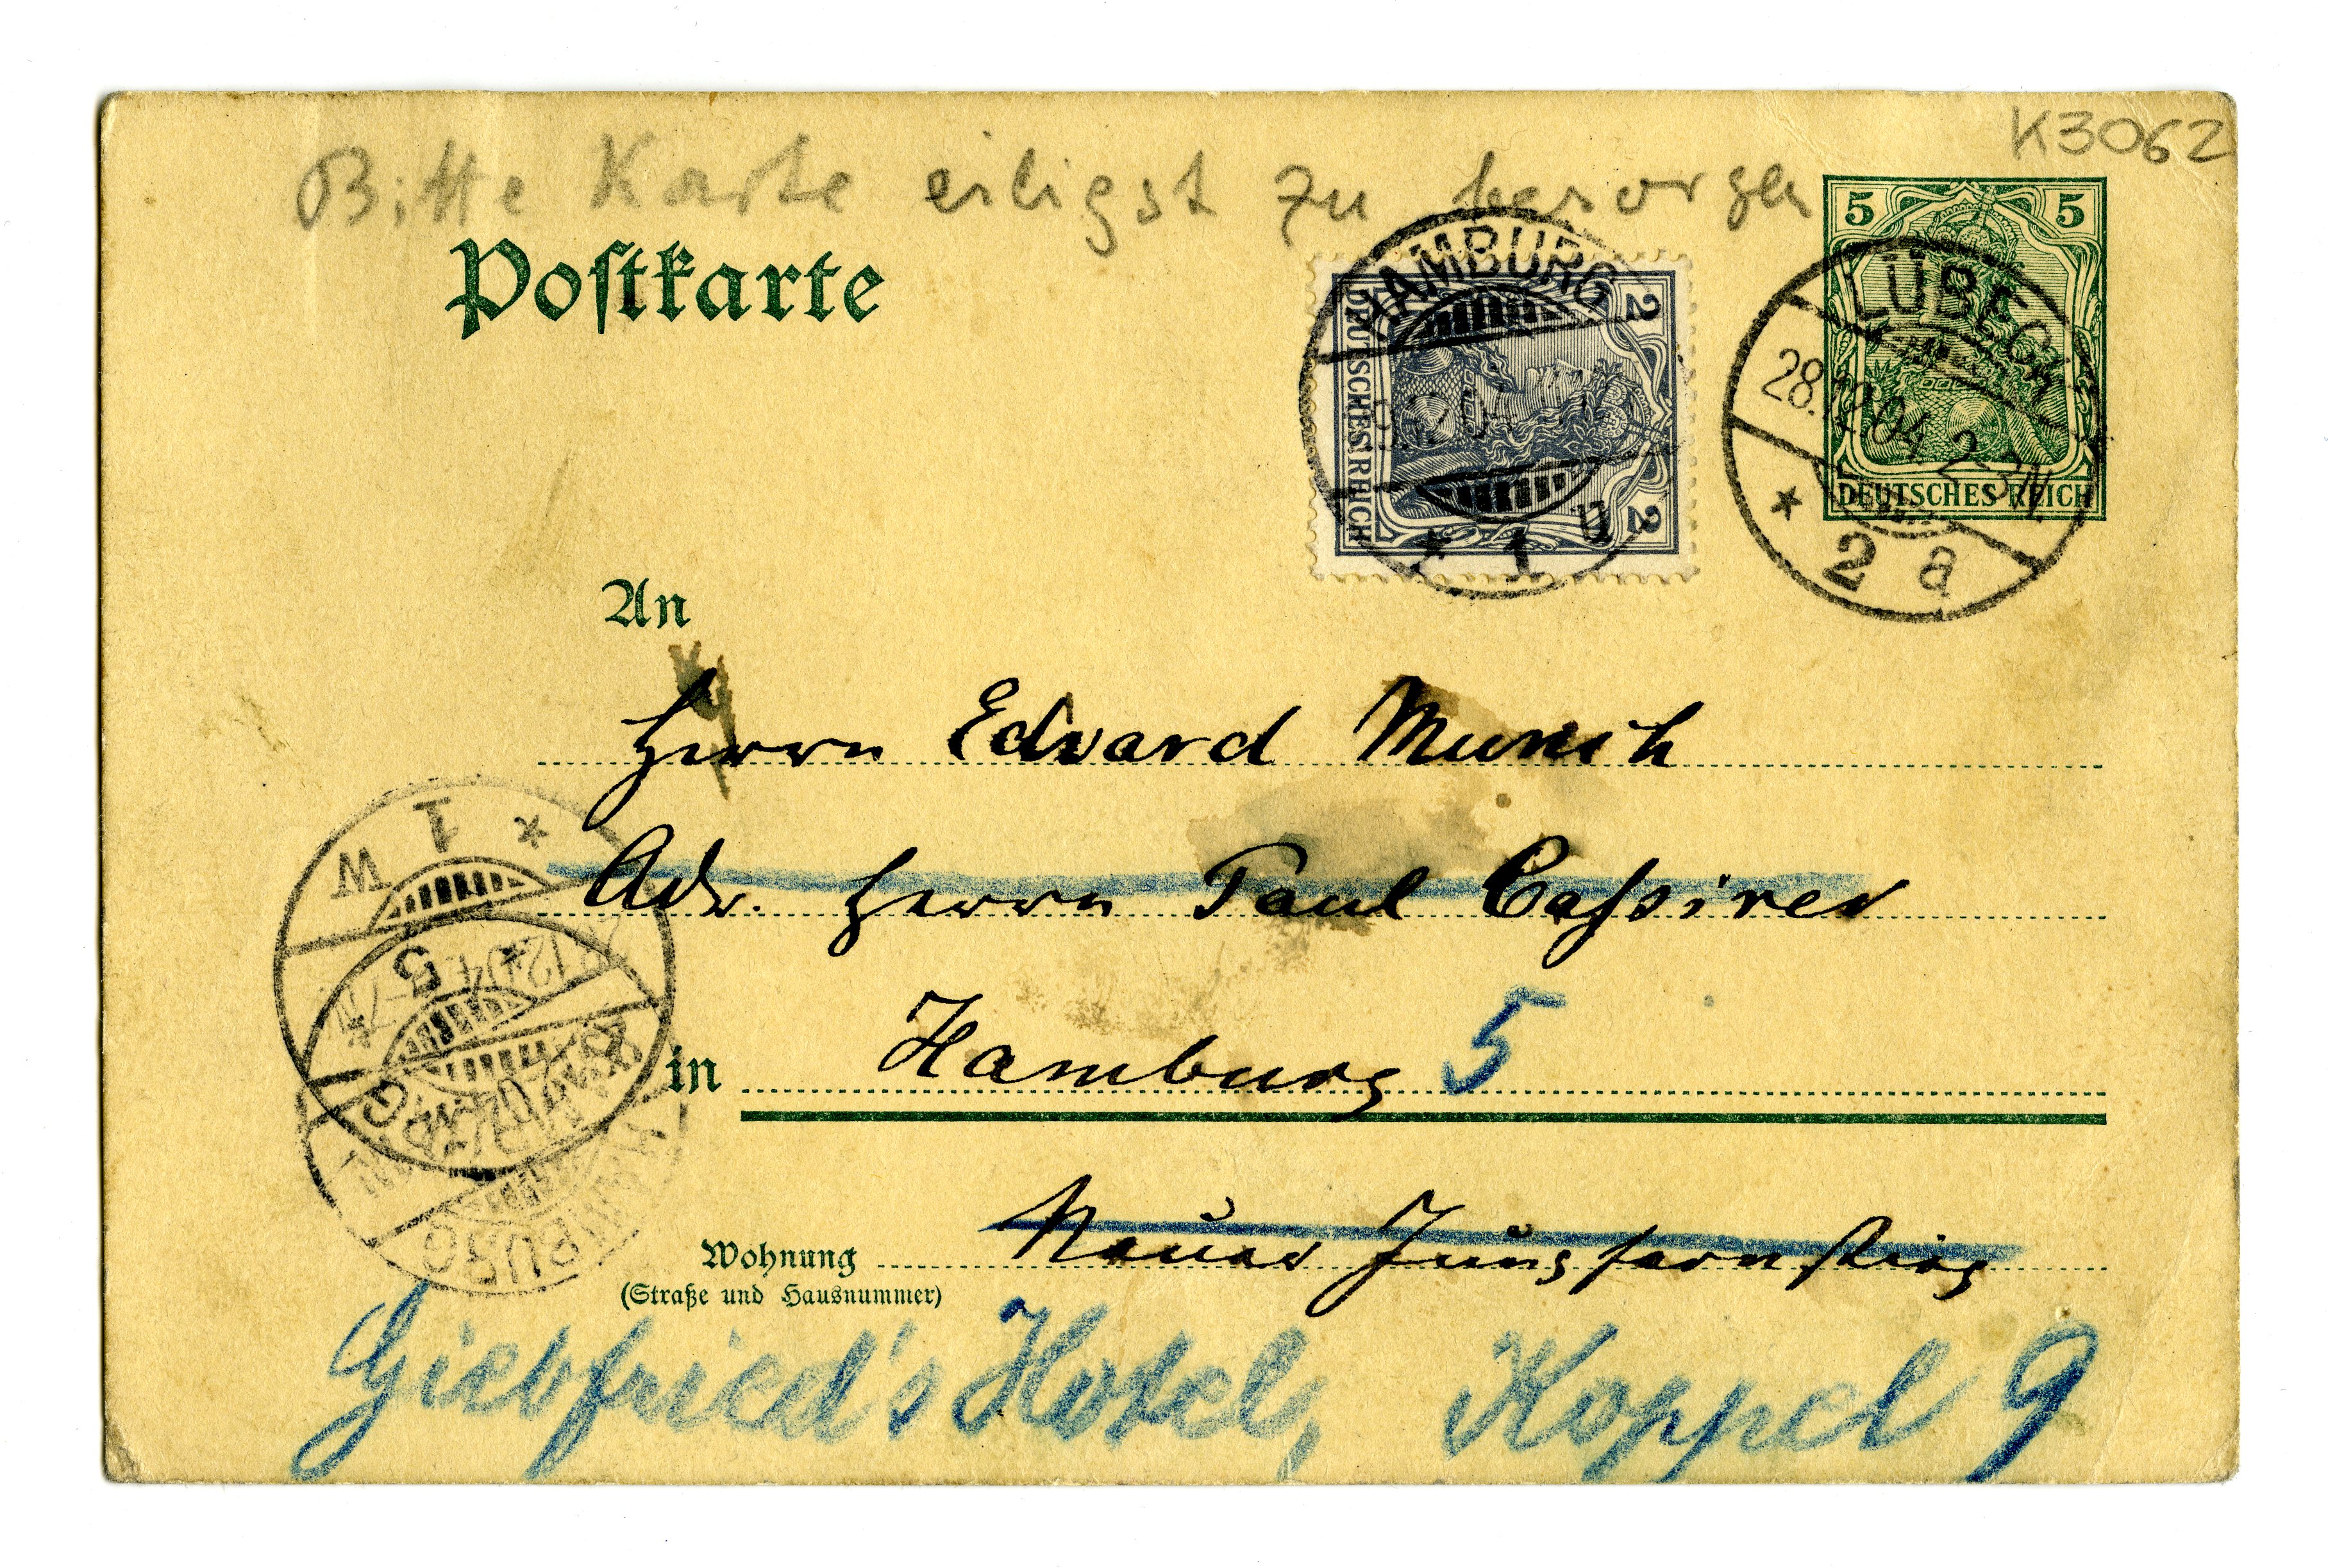 K3062
Bitte Karte eiligst zu besorgen
Postkarte
5 5
DEUTSCHES REICH
LÜBECK
28.12.04 2-3N.
* 2 a
2 2
DEUTSCHES REICH
HAMBURG
* 1 U
An
Herrn Edvard Munch
Adr. Herrn Paul Cassirer
in Hamburg 5
Neuer Jungfernstieg
Wohnung
(Straße und Hausnummer)
Giebfried's Hotel, Koppel 9
HAMBURG
* 1 W
HAMBURG
5